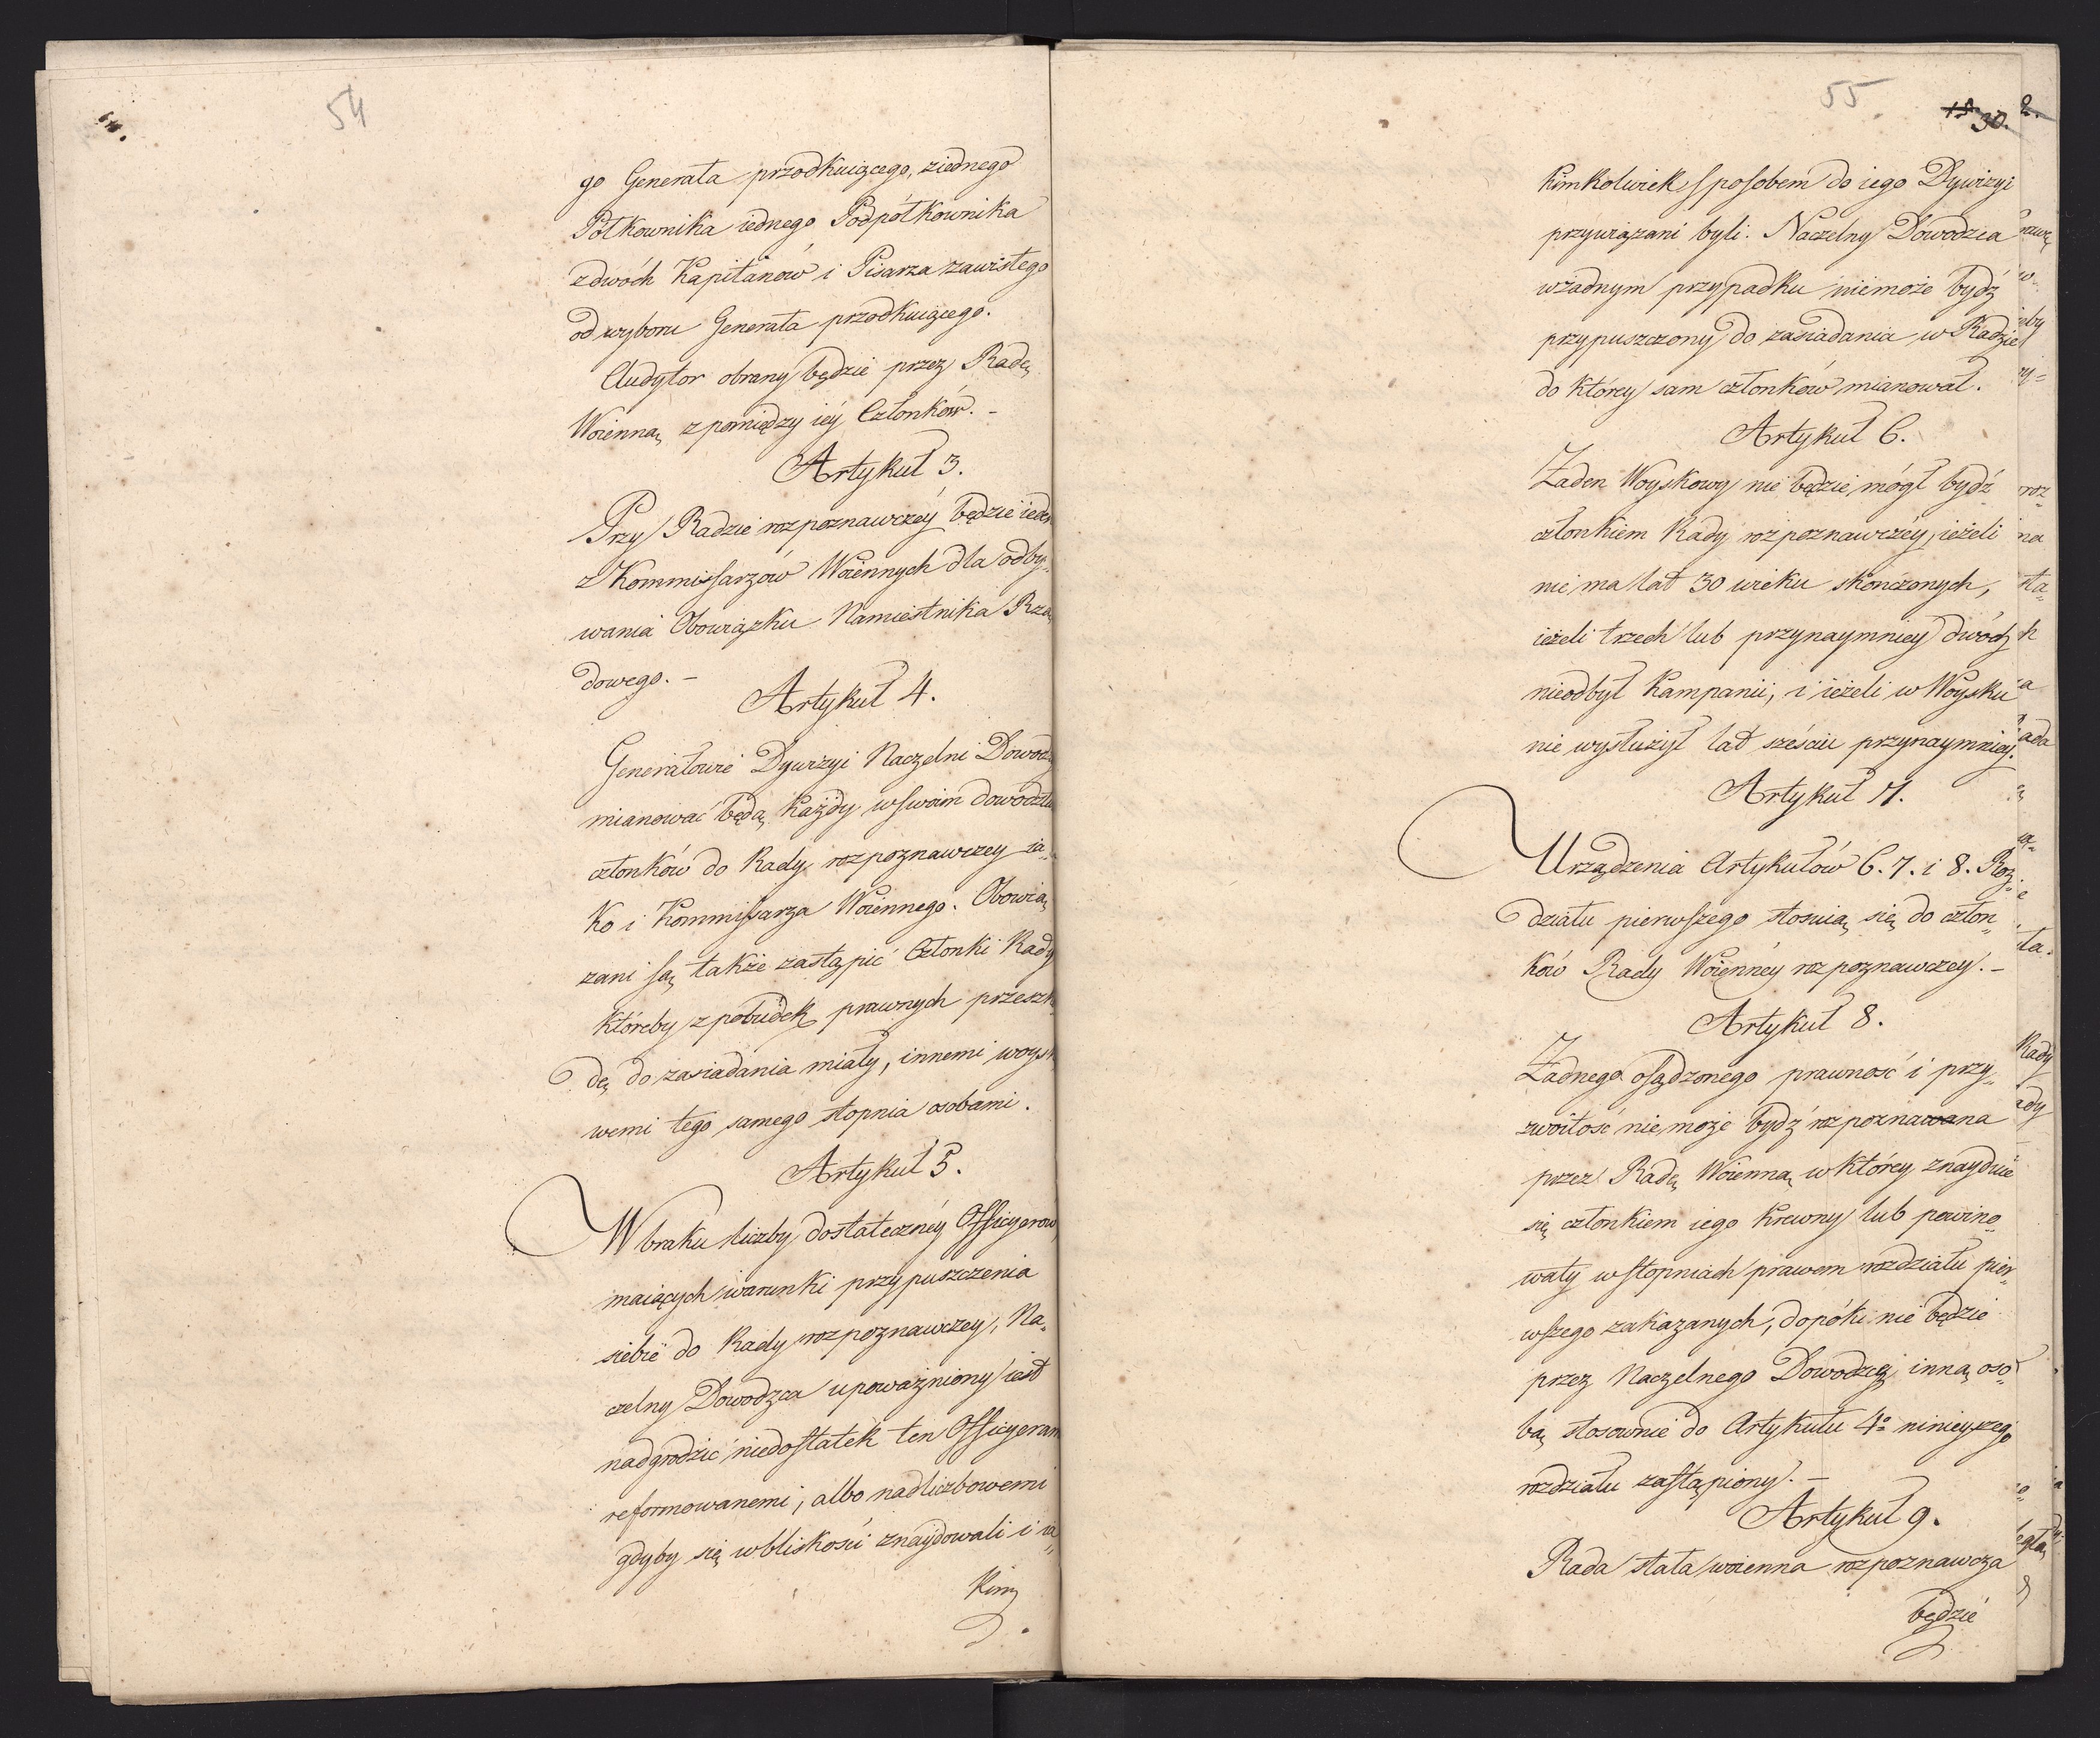 54
go Generała przodkuiącego, ziednego
Półkownika iednego Podpółkownika
z dwóch Kapitanów i Pisarza zawisłego
od wyboru Generała przodkuiącego.
Audytor obrany będzie przez Radę
Woienną z pomiędzy iéy Członków. –
Artykuł 3.
Przy Radzie rozpoznawczéy będzie ieden
z Kommissarzów Woiennych dla odby„
wania Obowiązku Namiestnika Rzą„
dowego. –
Artykuł 4.
Generałowie Dywizyi Naczelni Dowodz
mianować będą każdy w swoim dowodztw
członków do Rady rozpoznawczey ia„
ko i Kommissarza Woiennego. Obowią„
zani są także zastąpić Członki Rady
któreby z pobudek prawnych przeszk
dę do zasiadania miały, innemi woysk
wemi tego samego stopnia osobami.
Artykuł 5.
W braku liczby dostatecznéy Officyerow,
maiących warunki przypuszczenia
siebie do Rady rozpoznawczey, Na„
czelny Dowodzca upoważniony iest
nadgrodzić niedostatek ten Officyeram
reformowanemi, albo nadliczbowemi
gdyby się w bliskości znaydowali i ia„
kim
55
15 30. 2.
kimkolwiek sposobem do iego Dywizyi
przywiązani byli. Naczelny Dowodzca
w żadnym przypadku niemoże bydź
przypuszczony do zasiadania w Radzie
do ktorey sam członków mianował.
Artykuł 6.
Żaden Woyskowy nie będzie mógł bydź
członkiem Rady rozpoznawczéy, ieżeli
nie ma lat 30 wieku skończonych,
ieżeli trzech lub przynaymniey dwóch
nieodbył Kampanii, i ieżeli w Woysku
nie wysłużył lat sześciu przynaymniey.
Artykuł 7.
Urządzenia Artykułów 6. 7. i 8. Roz„
działu pierwszego stosuią się do człon„
ków Rady Woiennéy rozpoznawczey. –
Artykuł 8.
Żadnego osądzonego prawność i przy„
zwoitość nie może bydź rozpoznawana
przez Radę Woienną w którey znayduie
się członkiem iego Krewny lub powino„
waty w stopniach prawem rozdziału pier„
wszego zakazanych, dopóki nie będzie
przez Naczelnego Dowodzcę inną oso„
bą stosownie do Artykułu 4º ninieyszego
rozdziału zastąpiony. –
Artykuł 9.
Rada stała woienna rozpoznawcza
będzie